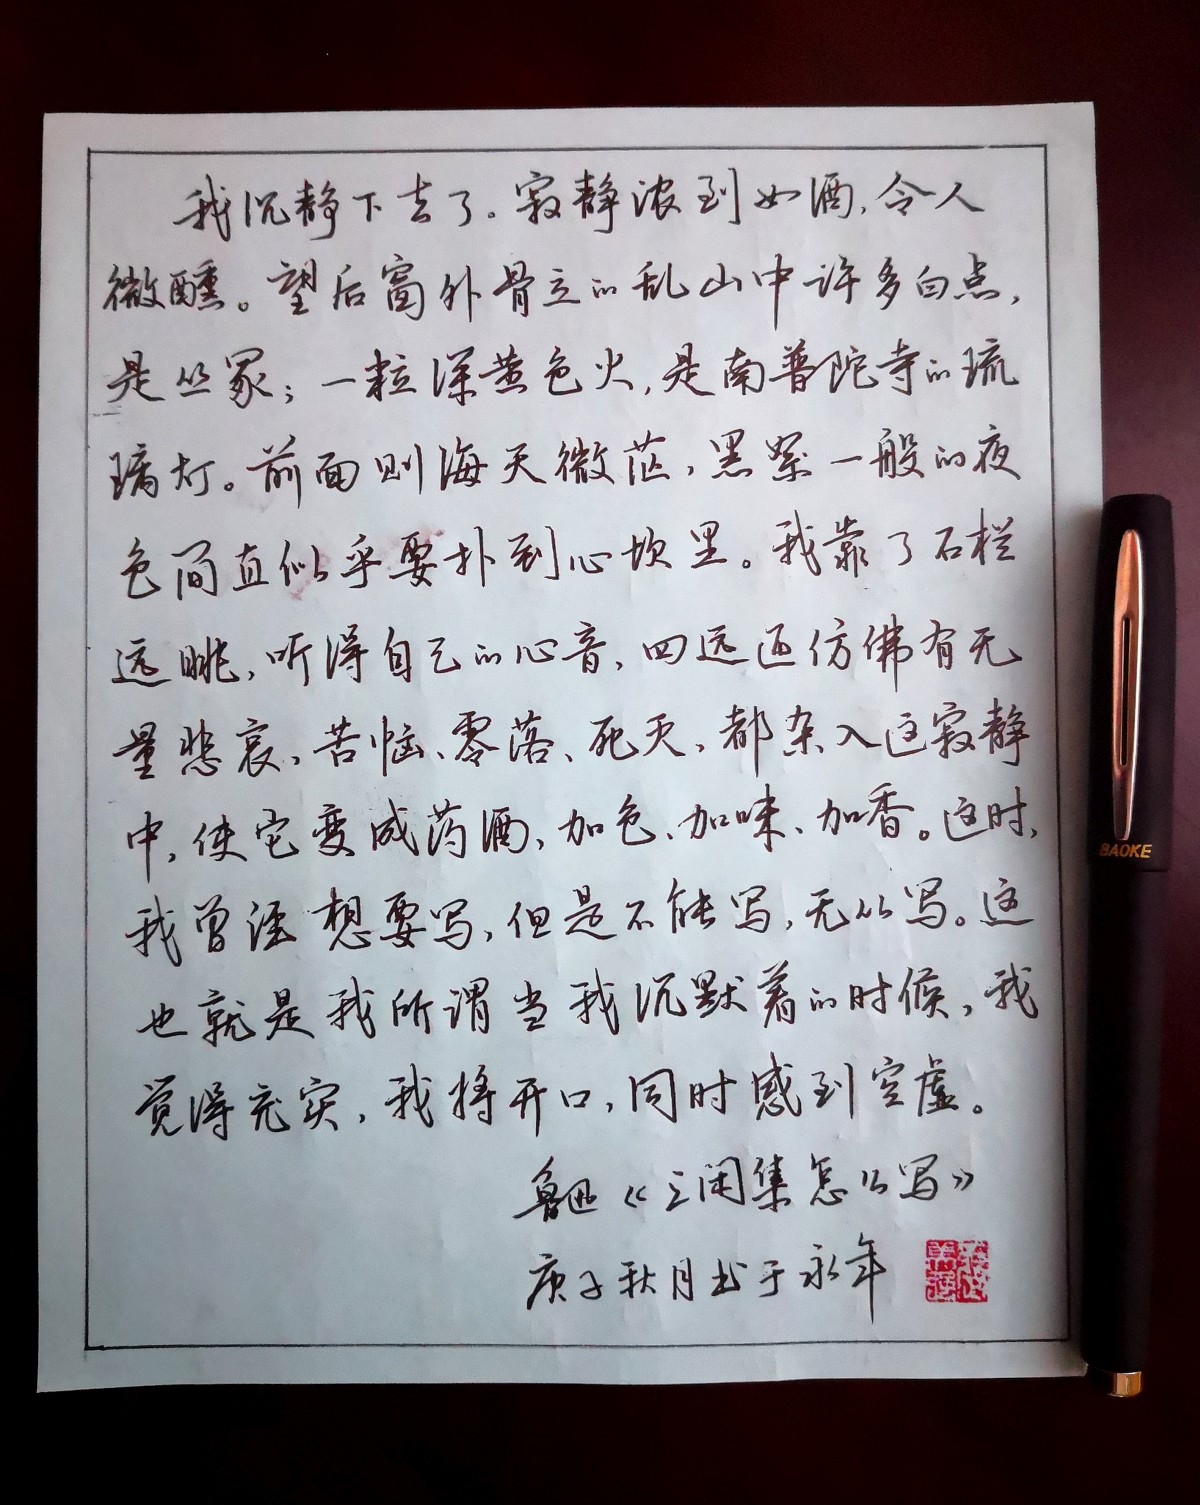 我沉静下去了。寂静浓到如酒,令人
微醺。望后窗外骨立的乱山中许多白点,
是丛冢;一粒深黄色火,是南普陀寺的琉
璃灯。前面则海天微茫,黑絮一般的夜
色简直似乎要扑到心坎里。我靠了石栏
远眺,听得自己的心音,四远还仿佛有无
量悲哀、苦恼、零落、死灭,都杂入这寂静
中,使它变成药酒,加色、加味、加香。这时,
我曾经想要写,但是不能写,无从写。这
也就是我所谓当我沉默着的时候,我
觉得充实,我将开口,同时感到空虚。
鲁迅《三闲集怎么写》
庚子秋月书于永年
BAOKE